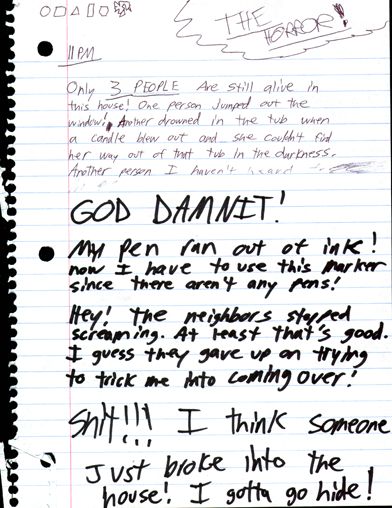 THE
HORROR!
11PM
Only 3 PEOPLE Are still alive in
this house! One person Jumped out the
window! Another drowned in the tub when
a candle blew out and she couldn't find
her way out of that tub in the darkness.
Another person I haven't heard
GOD DAMNIT!
My pen ran out of ink!
now I have to use this marker
since there aren't any pens!
Hey! the neighbors stopped
screaming. At least that's good.
I guess they gave up on trying
to trick me into coming over!
Shit!!! I think someone
Just broke into the
house! I gotta go hide!